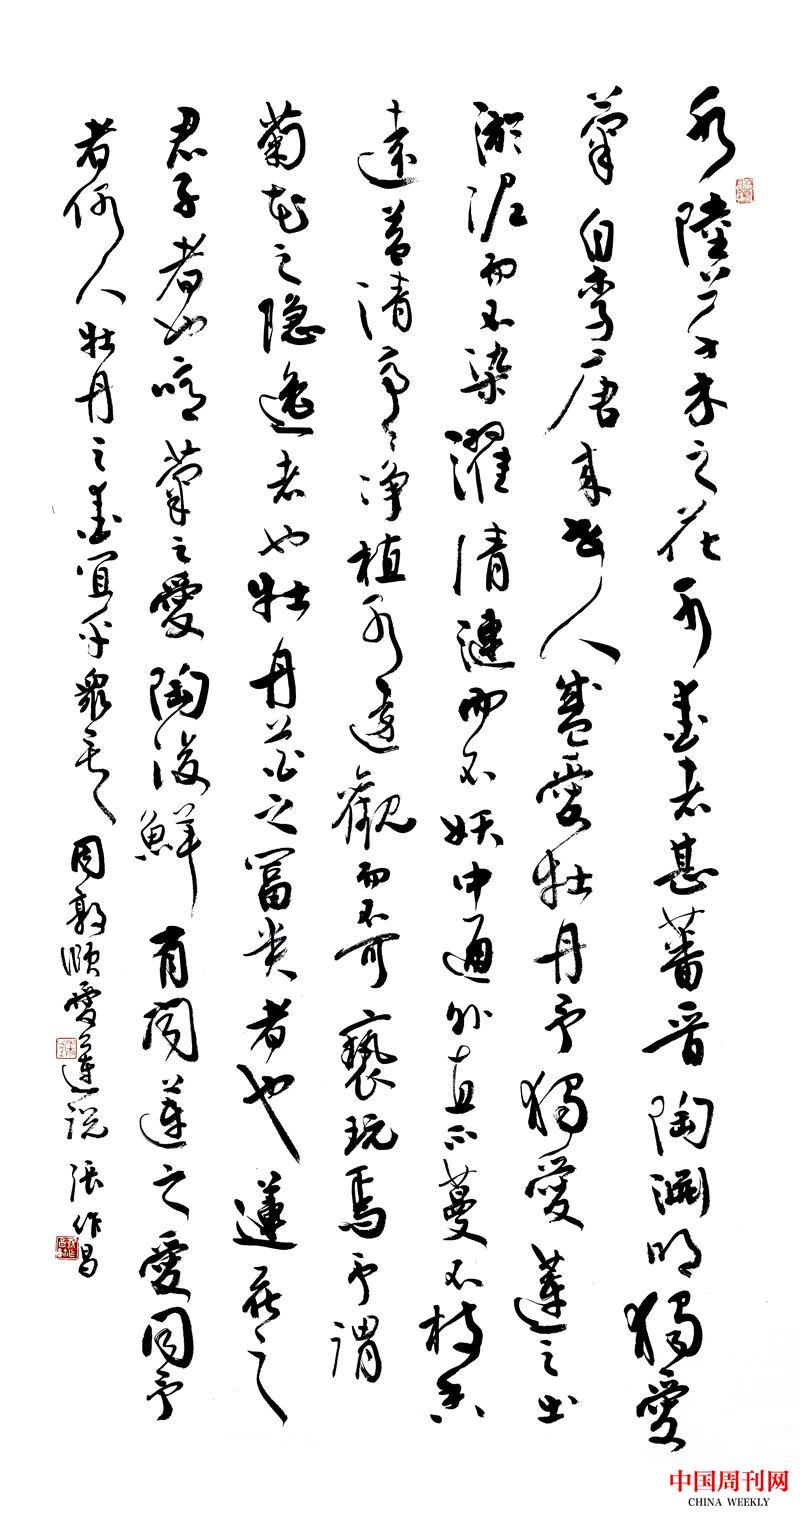 水陸草木之花可愛者甚蕃晋陶渊明獨愛
菊自李唐来世人盛愛牡丹予獨愛蓮之出
淤泥而不染濯清漣而不妖中通外直不蔓不枝香
遠益清亭々净植可遠觀而不可褻玩焉予謂
菊花之隐逸者也牡丹花之富贵者也蓮花之
君子者也噫菊之愛陶後鮮有闻蓮之愛同予
者何人牡丹之愛宜乎衆矣 周敦颐愛蓮説 張作昌
中国周刊网
CHINA WEEKLY